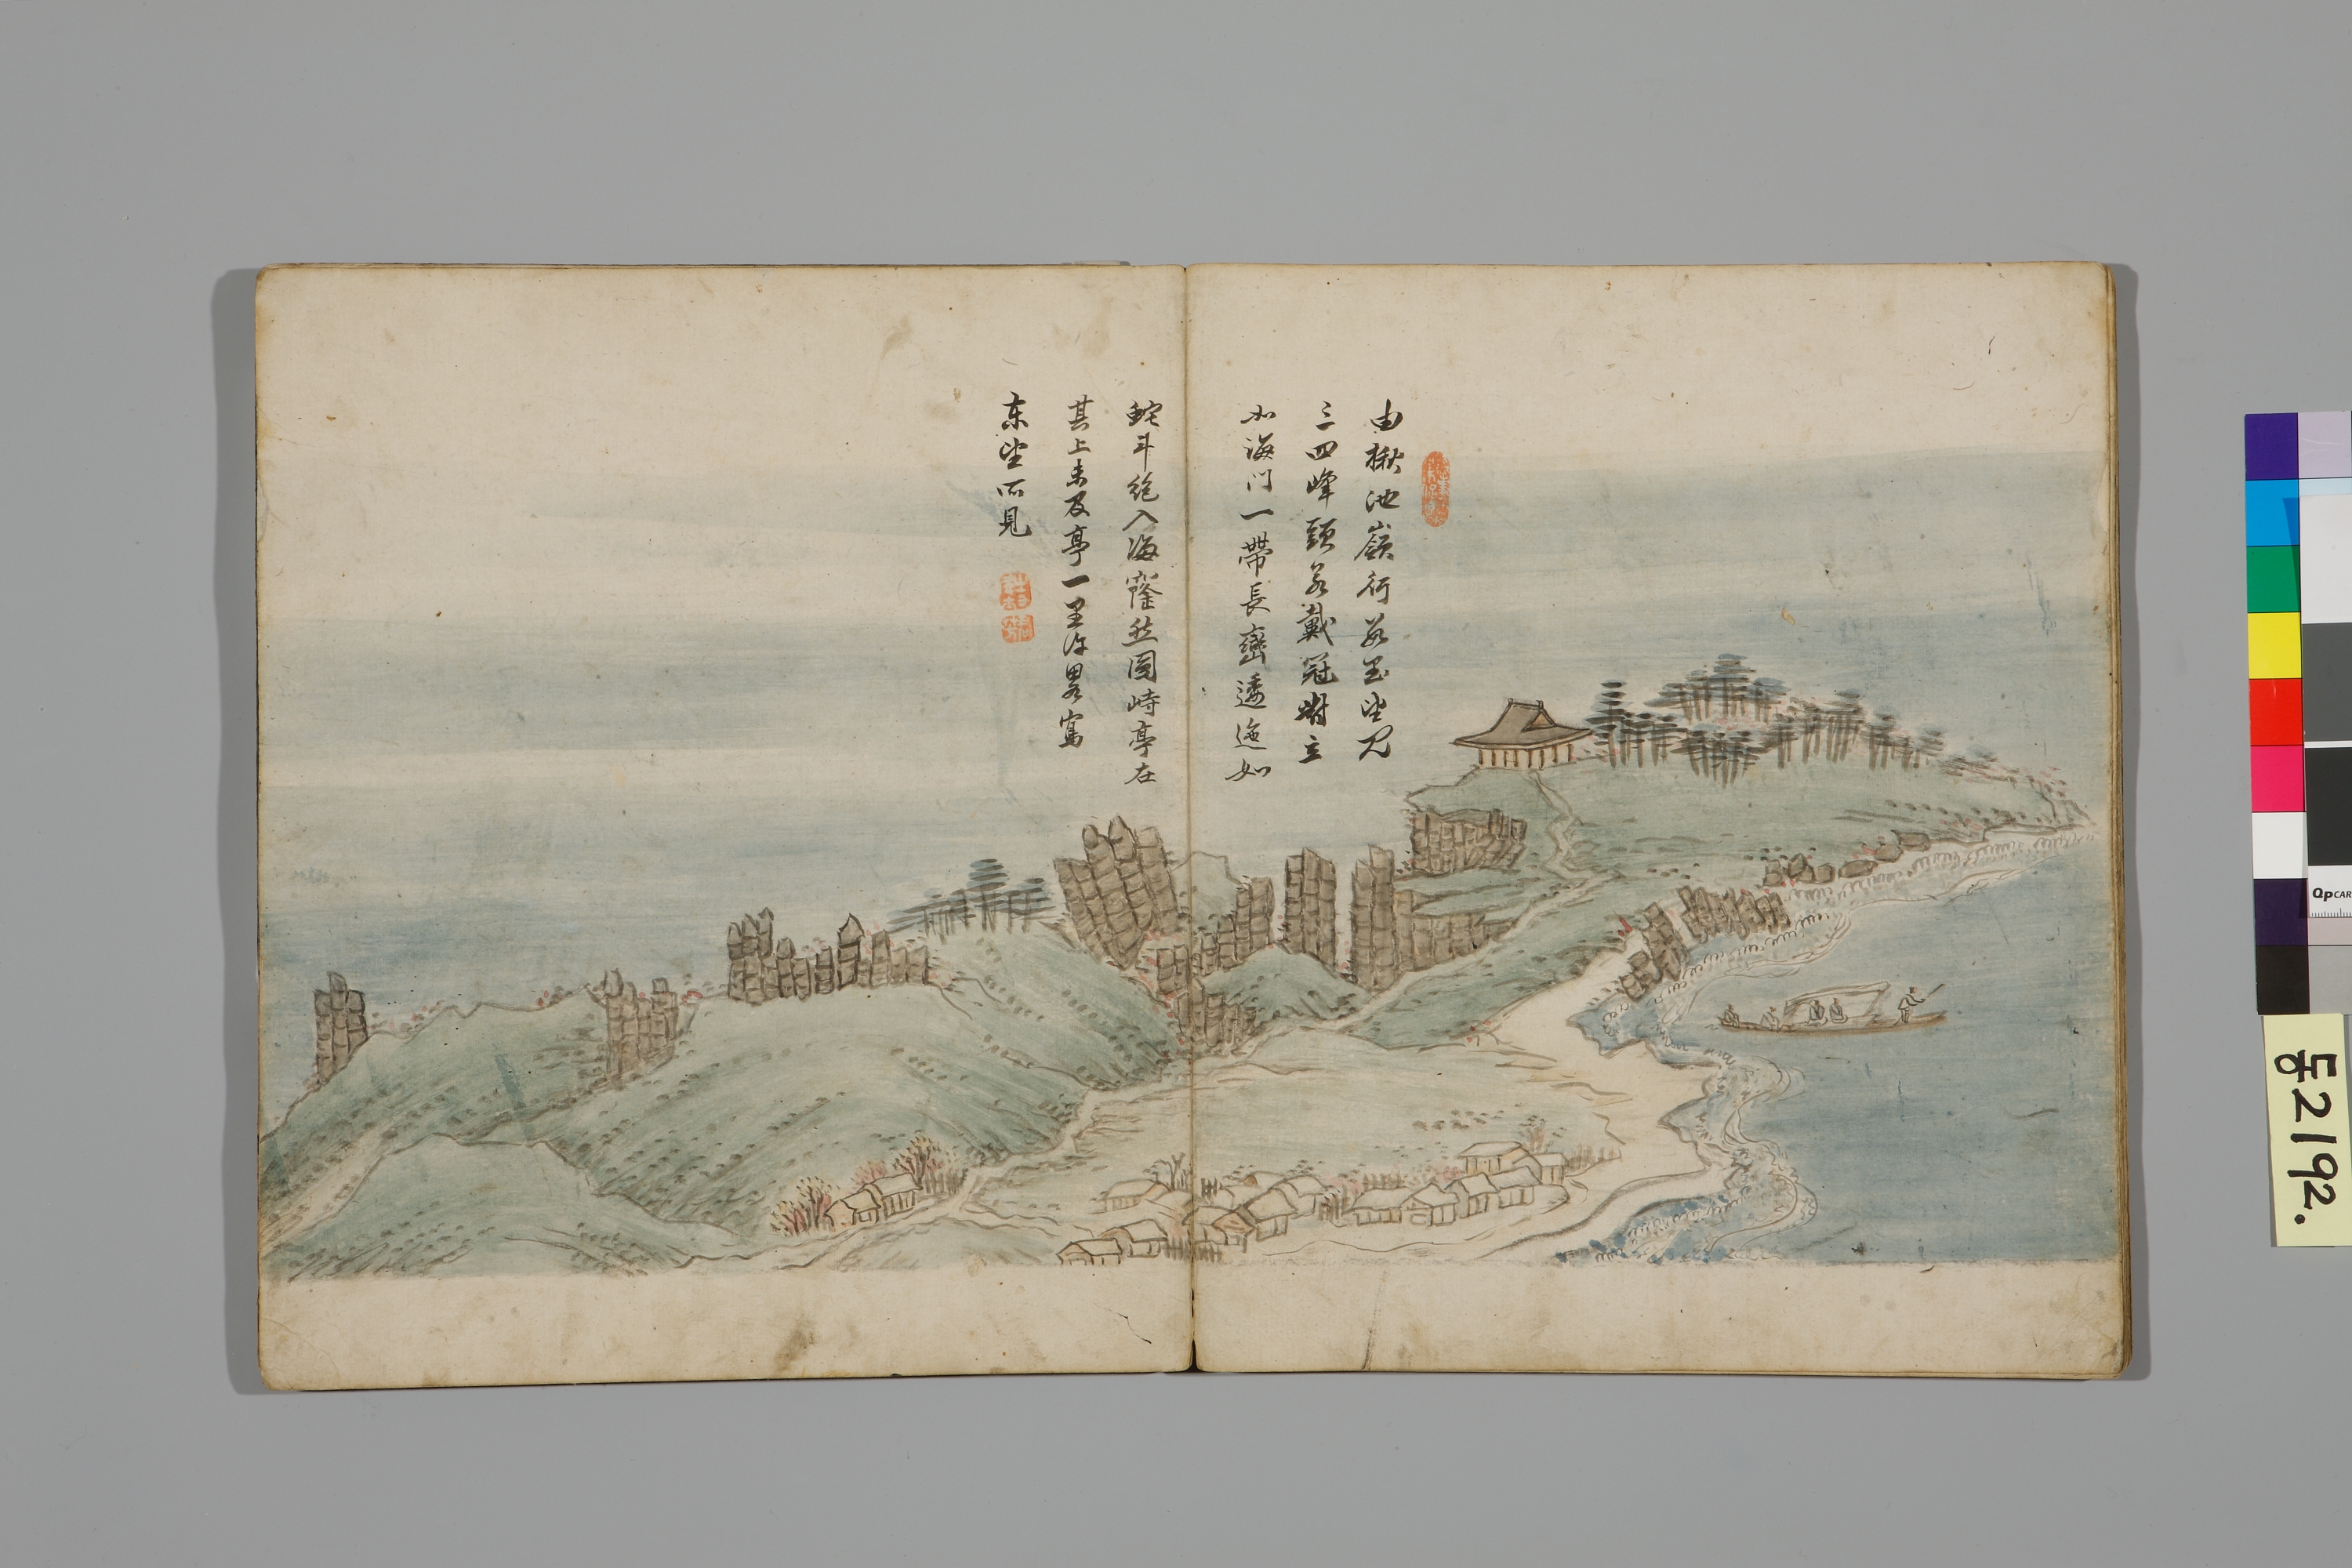 由楸池嶺行数里望見
三四峰頭若戴冠對立
如海门一帶長巒逶迤如
鮀斗絶入海窿然圓峙亭在
其上未及亭一里许畧寫
东望所見
동2192.
QpCAR